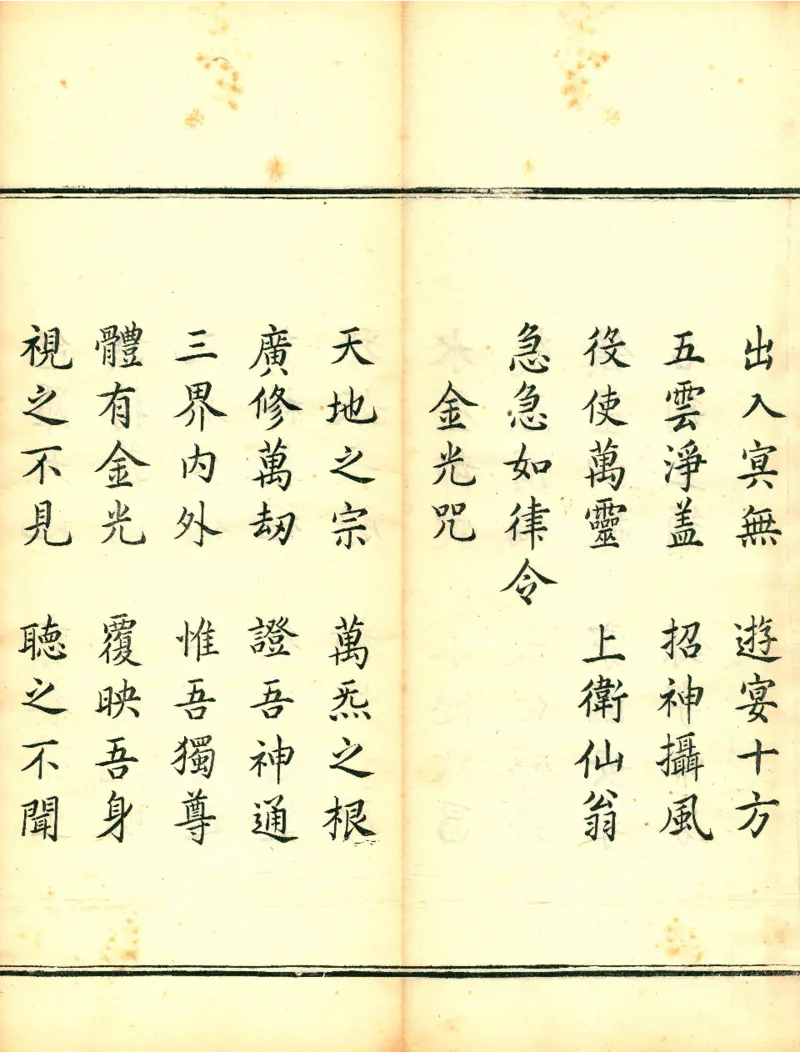 出入冥無　遊宴十方
五雲淨盖　招神攝風
役使萬靈　上衛仙翁
急急如律令
金光咒
天地之宗　萬炁之根
廣修萬劫　證吾神通
三界内外　惟吾獨尊
體有金光　覆映吾身
視之不見　聴之不聞